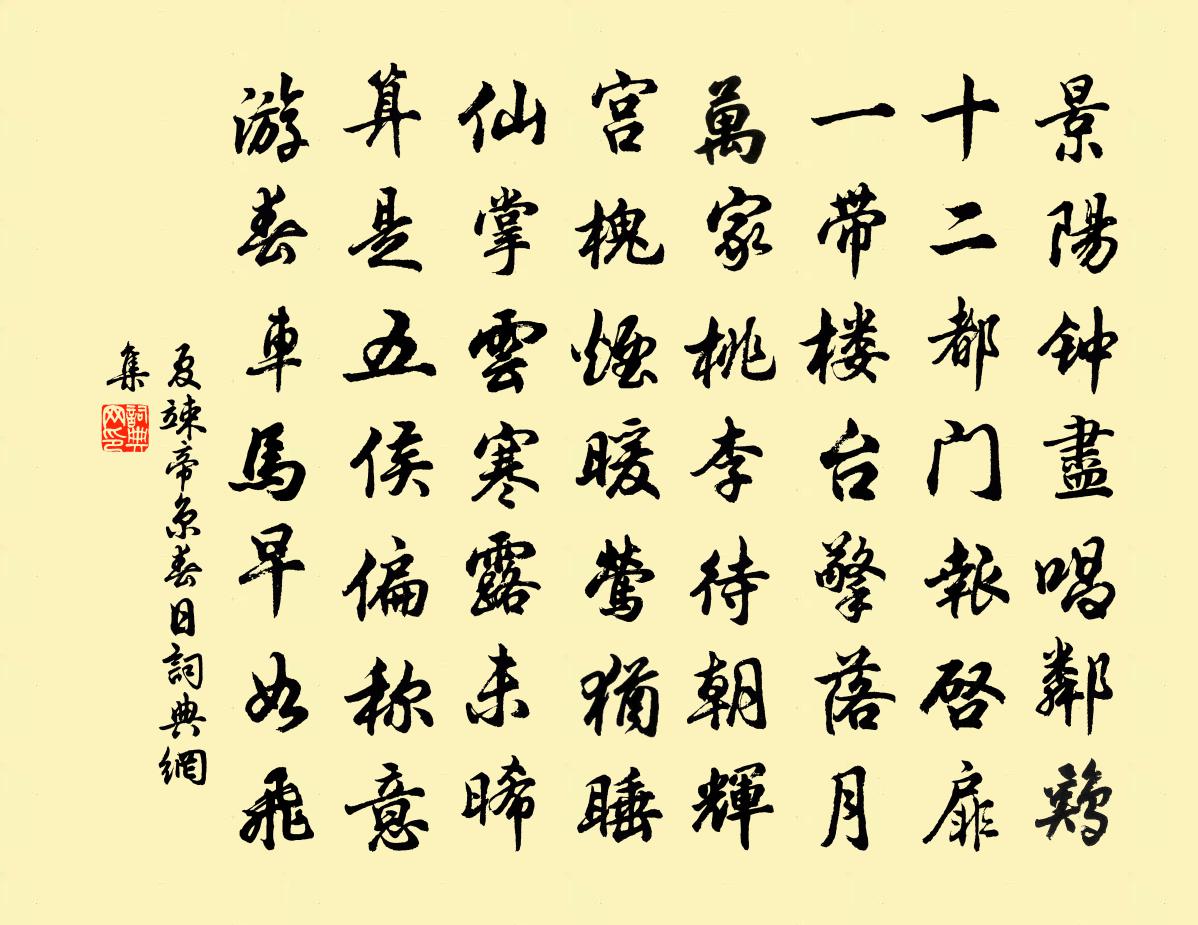 景陽钟盡唱鄰鷄
十二都门報啓扉
一带楼台擎落月
萬家桃李待朝輝
宫槐煙暖莺猶睡
仙掌雲寒露未晞
算是五侯偏称意
游春車馬早如飛
夏竦帝京春日詞典網
集
詞典网印